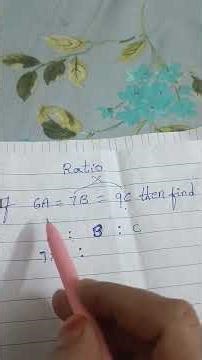 Ratio
If 6A = 7B = 9C then find
: B : C
: